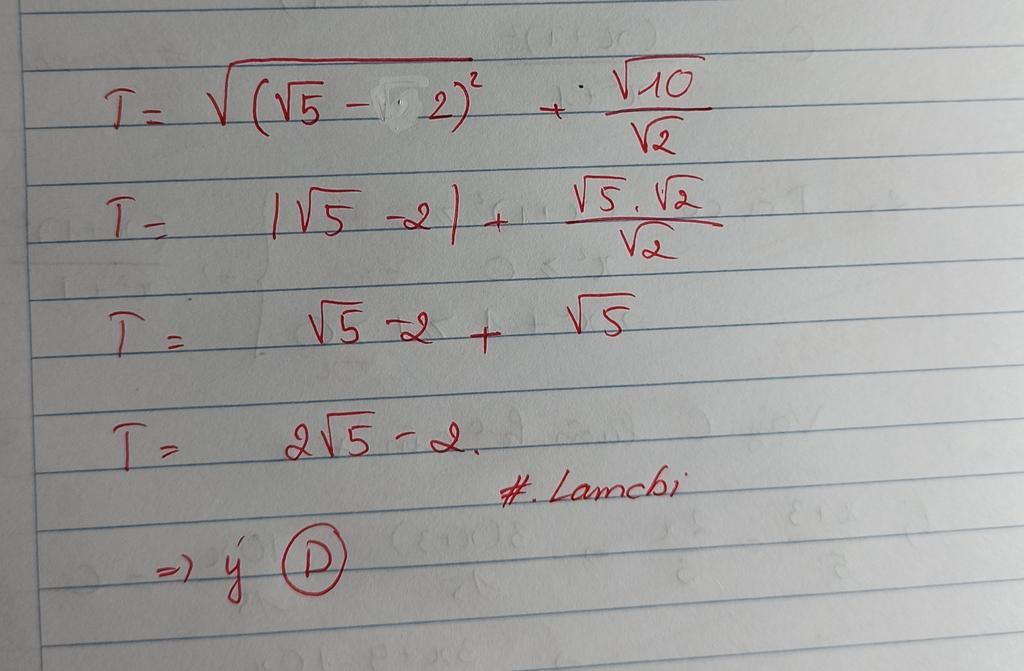 T = √(√5 - 2)² + √10/√2
T = |√5 - 2| + √5 . √2/√2
T = √5 - 2 + √5
T = 2√5 - 2.
#. Lamchi
=> ý D